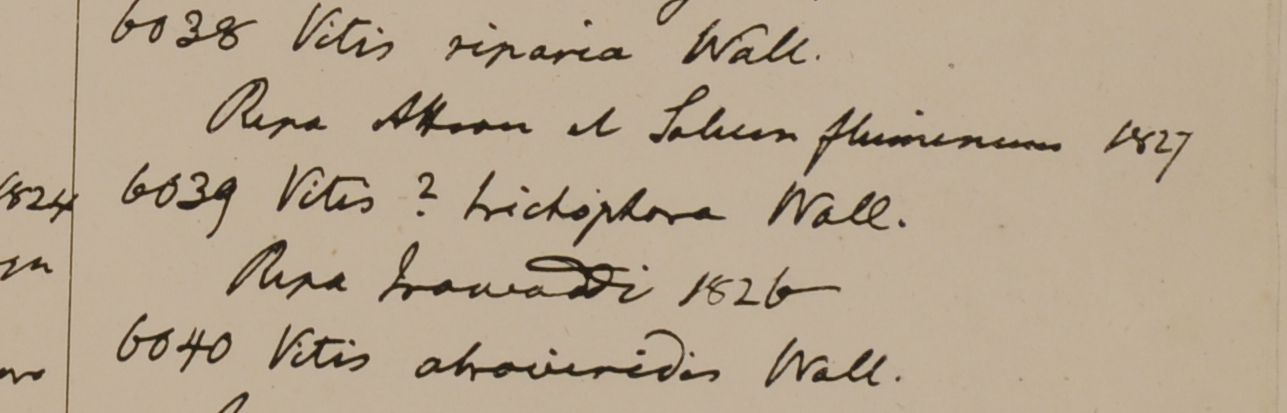 6038 Vitis riparia Wall.
Ripa Attran et Saluen fluminum 1827
1824 6039 Vitis ? trichophora Wall.
Ripa Irawaddi 1826
6040 Vitis atroviridis Wall.